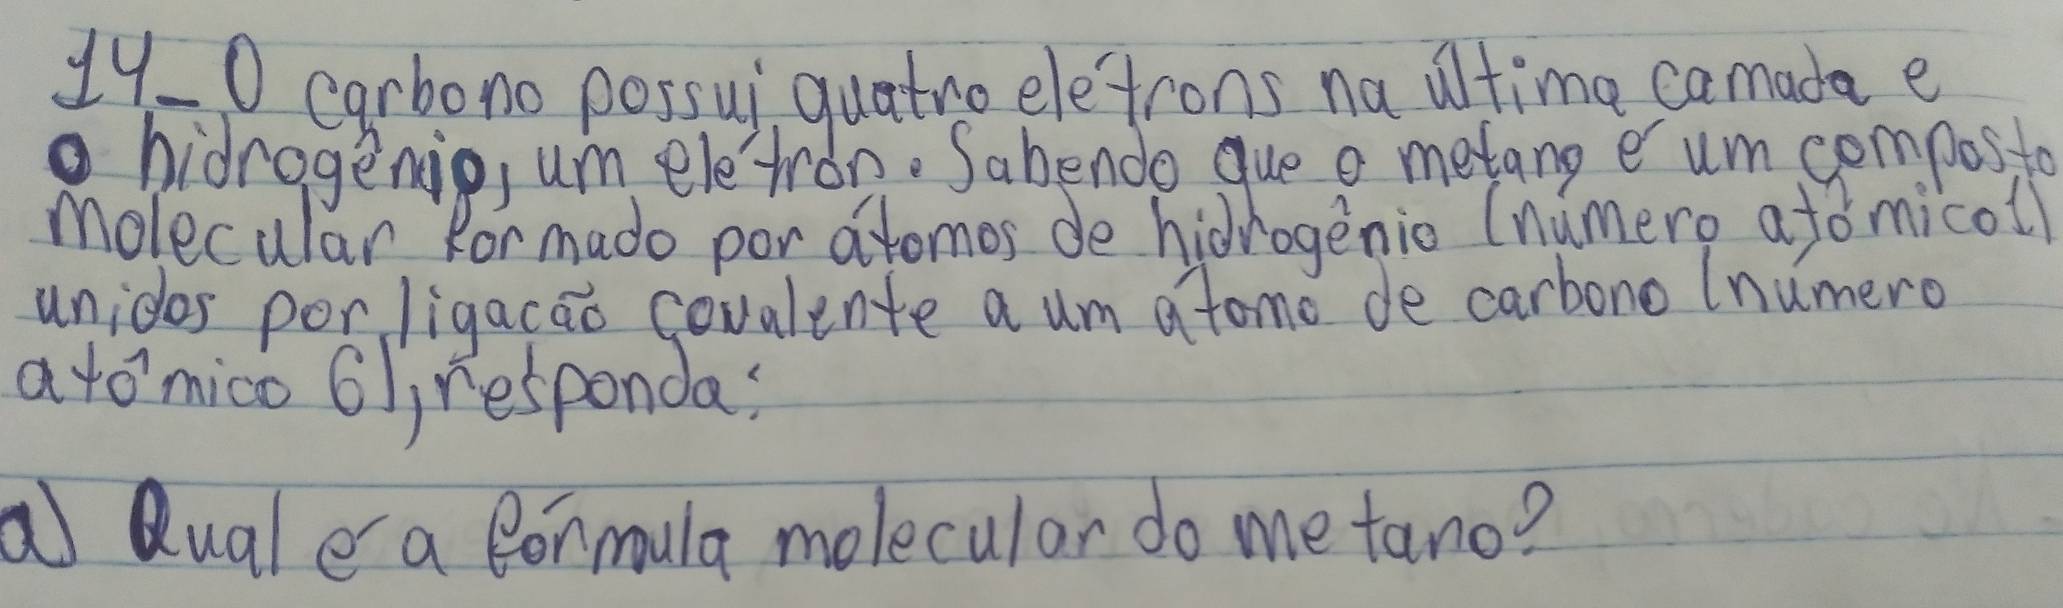 14_ O carbono possui quatro elétrons na última camada e
o hidrogênio, um elétron. Sabendo que o metano é um composto
molecular formado por átomos de hidrogênio (número atômico 1)
unidos por ligação covalente a um átomo de carbono (número
atômico 6), responda:
a) Qual é a fórmula molecular do metano?